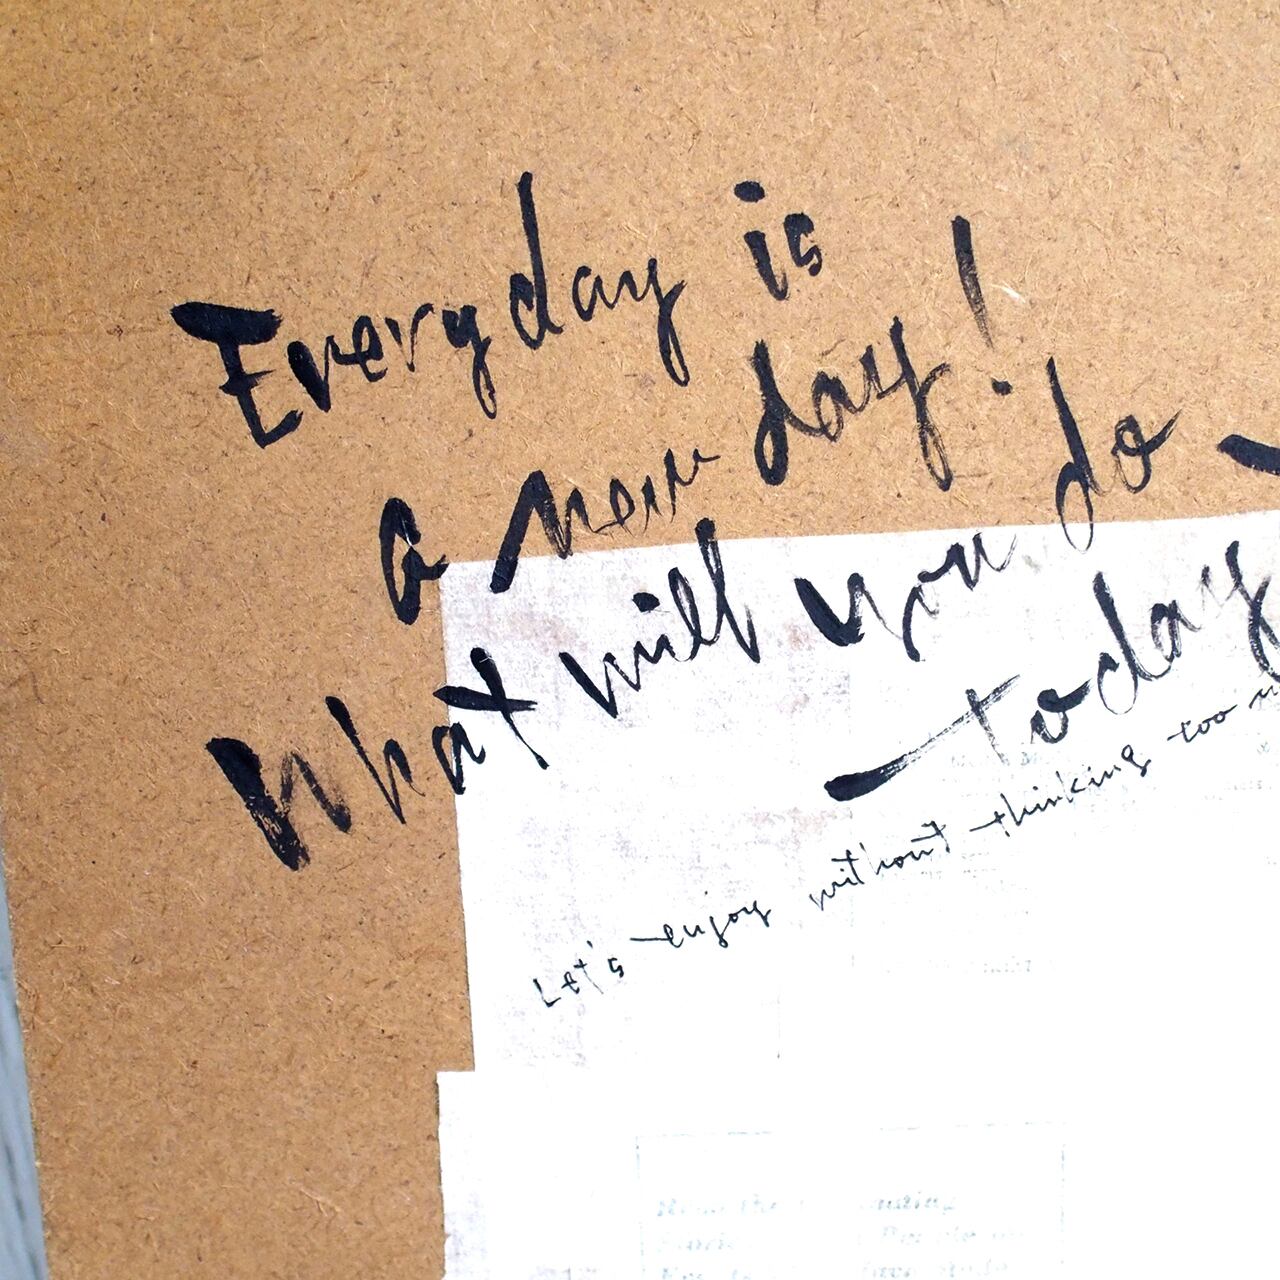 Everyday is
a new day!
What will you do
today
Let's enjoy without thinking too